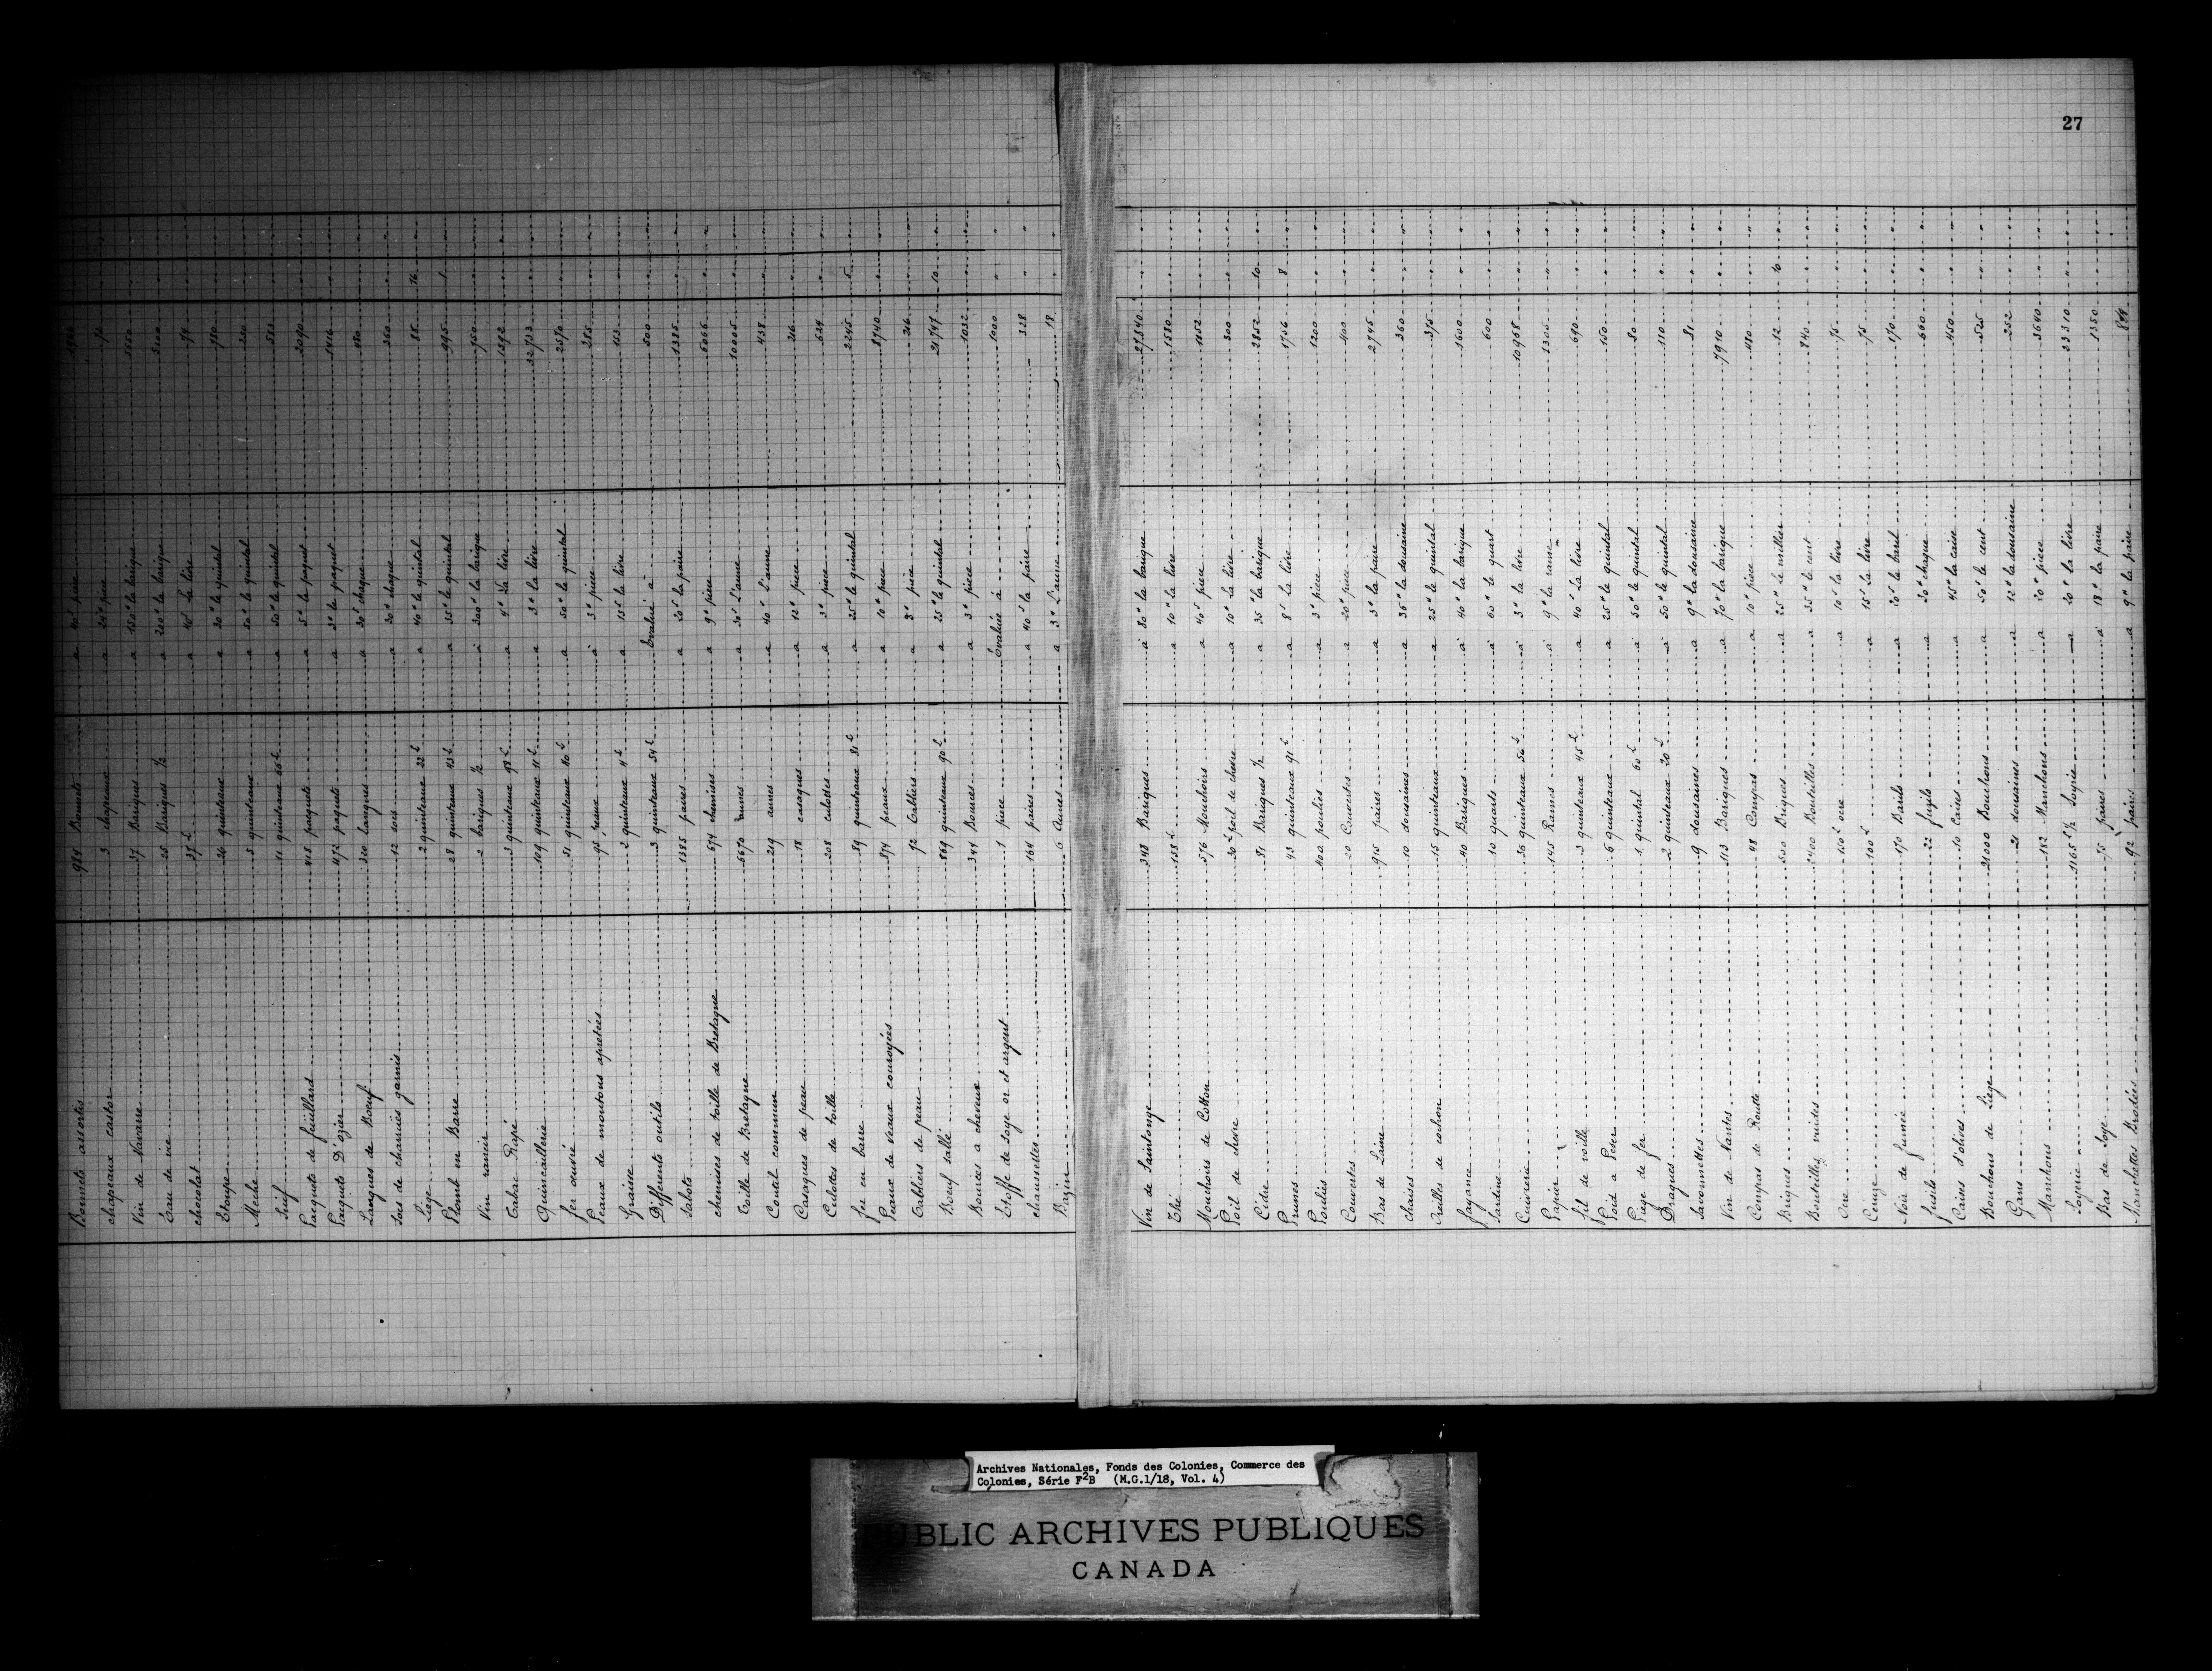 27
Bonnets assortis 984 Bonnets a 40ˢ piece 1968 " "
chapeaux castor 3 chapeaux a 24ᵗᵗ piece 72 " "
Vin de Navarre 37 Bariques a 150ᵗᵗ la barique 5550 " "
Eau de vie 25 Bariques ½ a 200ᵗᵗ la barique 5100 " "
chocolat 37 ℔ a 40ˢ La livre 74 " "
Etoupe 26 quinteaux a 30ᵗᵗ le quintal 780 " "
Meche 5 quinteaux a 50ᵗᵗ le quintal 250 " "
Suif 11 quinteaux 66 ℔ a 50ᵗᵗ le quintal 583 " "
Pacquets de feuillard 418 paquets a 5ᵗᵗ le paquet 2090 " "
Pacquets D'ozier 472 paquets a 3ᵗᵗ le paquet 1416 " "
Langues de Boeuf 320 Langues a 30ˢ chaque 480 " "
Socs de charuës garnis 12 socs a 30ᵗᵗ chaque 360 " "
Liege 2 quinteaux 22 ℔ a 40ᵗᵗ le quintal 88 16 "
Plomb en Barre 28 quinteaux 43 ℔ a 35ᵗᵗ le quintal 995 1 "
Vin rancio 2 bariques ½ a 300ᵗᵗ la barique 750 " "
Tabac Rapé 3 quinteaux 98 ℔ a 4ᵗᵗ La livre 1592 " "
Quincaillerie 109 quinteaux 11 ℔ a 3ᵗᵗ la livre 32733 " "
fer ouvré 51 quinteaux 40 ℔ a 50ᵗᵗ le quintal 2570 " "
Peaux de moutons apretées 95 peaux a 3ᵗᵗ piece 285 " "
Graisse 2 quinteaux 4 ℔ a 15ˢ la livre 153 " "
Differents outils 3 quinteaux 54 ℔ Evalué à 500 " "
Sabots 1385 paires a 20ˢ la paire 1385 " "
chemises de toille de Bretagne 674 chemises a 9ᵗᵗ piece 6066 " "
Toille de Bretagne 6670 aunes a 30ˢ L'aune 10005 " "
Coutil commun 219 aunes a 40ˢ L'aune 438 " "
Casaques de peau 18 casaques a 12ᵗᵗ piece 216 " "
Culottes de toille 208 culottes a 3ᵗᵗ piece 624 " "
fer en barre 89 quinteaux 81 ℔ a 25ᵗᵗ le quintal 2245 5 "
Peaux de veaux couroyées 874 peaux a 10ᵗᵗ piece 8740 " "
Tabliers de peau 72 Tabliers a 3ᵗᵗ piece 216 " "
Boeuf sallé 869 quinteaux 90 ℔ a 25ᵗᵗ le quintal 21747 10 "
Bources a cheveux 344 Bources a 3ᵗᵗ piece 1032 " "
Etoffe de soye or et argent 1 piece Evaluée à 1000 " "
chaussettes 164 paires a 40ˢ la paire 328 " "
Bazin 6 Aunes a 3ᵗᵗ L'aune 18 " "
Vin de Saintonge 348 Bariques à 80ᵗᵗ la barique 27840 " "
Thé 158 ℔ a 10ᵗᵗ la livre 1580 " "
Mouchoirs de Cotton 576 Mouchoirs a 40ˢ piece 1152 " "
Poil de chevre 30 ℔ poil de chevre a 10ᵗᵗ La livre 300 " "
Cidre 81 Bariques ½ a 35ᵗᵗ la barique 2852 10 "
Prunes 43 quinteaux 91 ℔ a 8ˢ La livre 1756 8 "
Poulies 400 poulies a 3ᵗᵗ piece 1200 " "
Couvertes 20 Couvertes a 20ᵗᵗ piece 400 " "
Bas de Laine 915 paires a 3ᵗᵗ la paire 2745 " "
chaises 10 dousaines a 36ᵗᵗ la dousaine 360 " "
Oreilles de cochon 15 quinteaux a 25ᵗᵗ le quintal 375 " "
fayance 40 Bariques à 40ᵗᵗ la barique 1600 " "
Sardine 10 quarts à 60ᵗᵗ le quart 600 " "
Cuivrerie 36 quinteaux 56 ℔ à 3ᵗᵗ la livre 10968 " "
Papier 145 Rames à 9ᵗᵗ la rame 1305 " "
fil de voille 3 quinteaux 45 ℔ a 40ˢ La livre 690 " "
Poid a Peser 6 quinteaux a 25ᵗᵗ le quintal 150 " "
Piege de fer 1 quintal 60 ℔ à 50ᵗᵗ le quintal 80 " "
Dragues 2 quinteaux 20 ℔ à 50ᵗᵗ le quintal 110 " "
Savonnettes 9 dousaines a 9ᵗᵗ la dousaine 81 " "
Vin de Nantes 113 Bariques a 70ᵗᵗ la barique 7910 " "
Compas de Routte 48 Compas a 10ᵗᵗ piece 480 " "
Briques 500 Briques a 25ᵗᵗ le millier 12 "
Bouteilles vuides 2400 Bouteilles a 35ᵗᵗ le cent 840 " "
Cire 150 ℔ cire a 10ˢ la livre 75 " "
Ceruze 100 ℔ a 15ˢ la livre 75 " "
Noir de fumée 170 Barils a 20ˢ le baril 170 " "
fusils 22 fuzils a 30ᵗᵗ chaque 660 " "
Caives d'olives 10 Caives a 45ᵗᵗ la caive 450 " "
Bouchons de Liege 21000 Bouchons a 50ˢ le cent 525 " "
Gans 21 dousaines a 12ᵗᵗ la dousaine 252 " "
Manchons 182 Manchons a 20ᵗᵗ piece 3640 " "
Soyerie 1165 ℔ ½ Soyrie a 20ᵗᵗ la livre 23310 " "
Bas de Soye 75 paires a 18ᵗᵗ la paire 1350 " "
Manchettes Brodées 92 paires a 9ᵗᵗ la paire 828
Archives Nationales, Fonds des Colonies, Commerce des
Colonies, Série F²B (M.G.1/18, Vol. 4)
PUBLIC ARCHIVES PUBLIQUES
CANADA